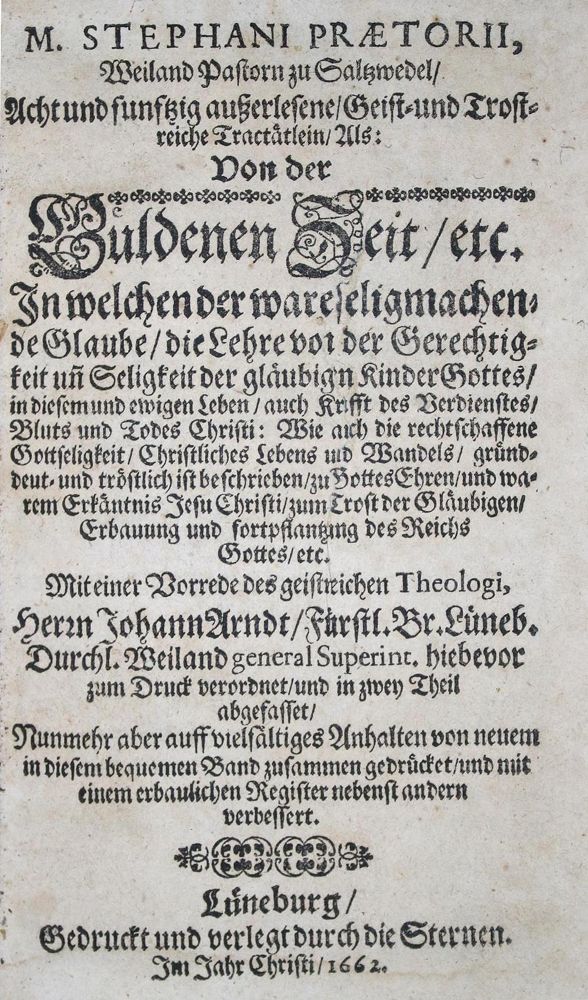 M. STEPHANI PRÆTORII,
Weiland Pastorn zu Saltzwedel/
Acht und funfftzig außerlesene/Geist- und Trost-
reiche Tractätlein/Als:
Von der
Guldenen Zeit/etc.
In welchen der ware seligmachen-
de Glaube/die Lehre von der Gerechtig-
keit uñ Seligkeit der gläubign Kinder Gottes/
in diesem und ewigen Leben/auch Krafft des Verdienstes/
Bluts und Todes Christi: Wie auch die rechtschaffene
Gottseligkeit/Christliches Lebens und Wandels/gründ-
deut- und tröstlich ist beschrieben/zu Gottes Ehren/und wa-
rem Erkäntnis Jesu Christi/zum Trost der Gläubigen/
Erbauung und fortpflantzung des Reichs
Gottes/etc.
Mit einer Vorrede des geistreichen Theologi,
Herrn Johann Arndt/Fürstl. Br. Lüneb.
Durchl. Weiland general Superint. hiebevor
zum Druck verordnet/und in zwey Theil
abgefasset/
Nunmehr aber auff vielfältiges Anhalten von neuem
in diesem bequemen Band zusammen gedrücket/und mit
einem erbaulichen Register nebenst andern
verbessert.
Lüneburg/
Gedruckt und verlegt durch die Sternen.
Im Jahr Christi/1662.